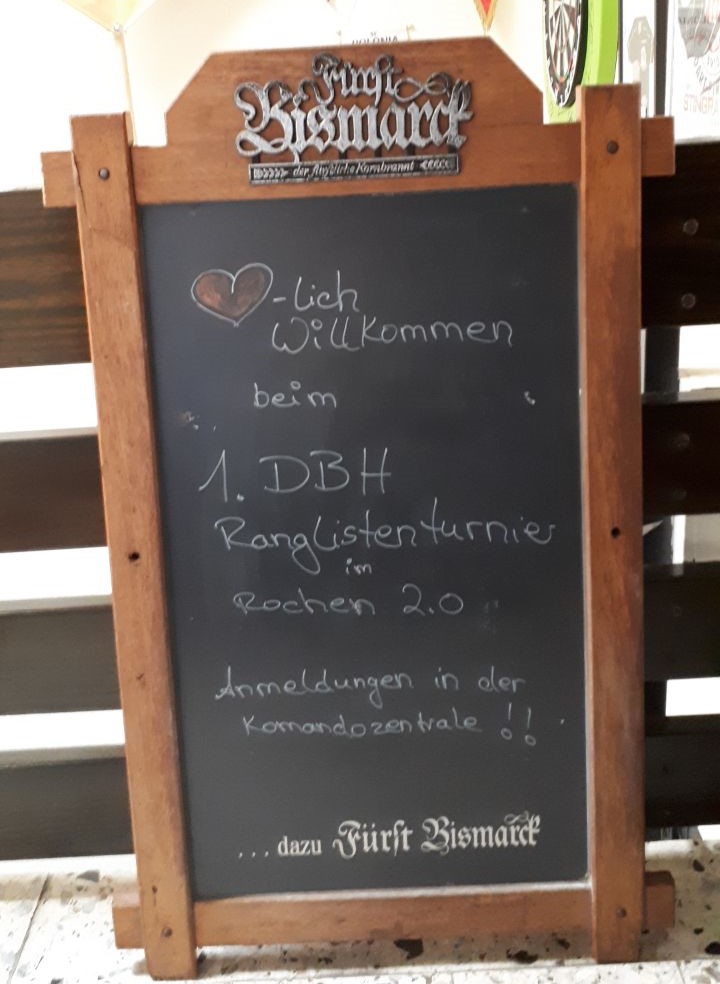 Fürst
Bismarck
der fürstliche Kornbrannt
-lich
Willkommen
beim
1. DBH
Ranglistenturnier
im
Rochen 2.0
Anmeldungen in der
Komandozentrale !!
... dazu Fürst Bismarck